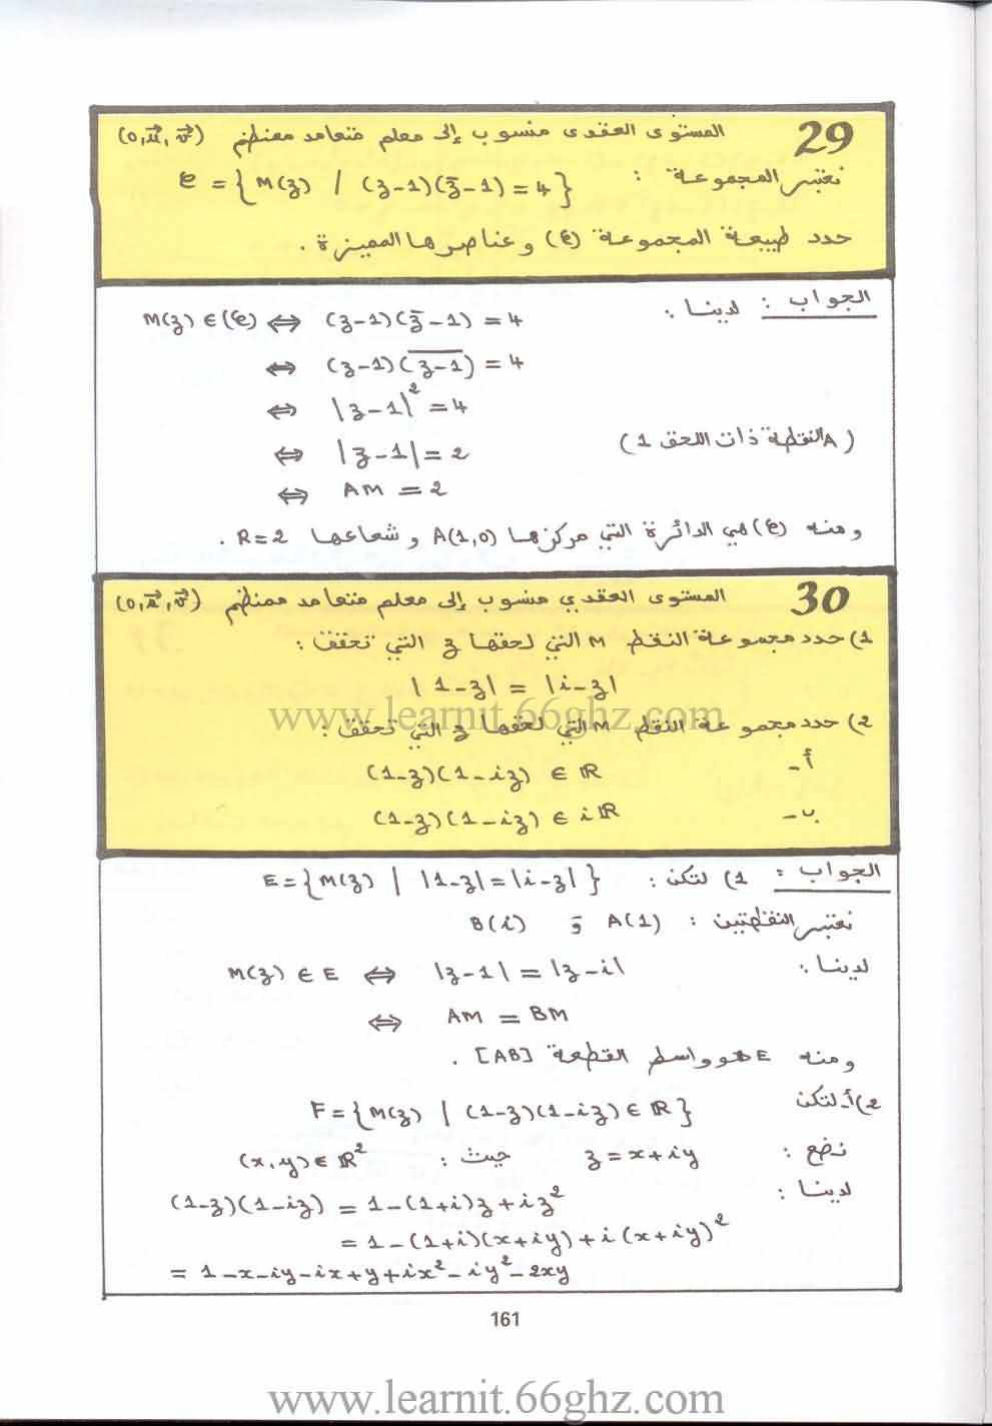 29 المستوى العقدي منسوب إلى معلم متعامد ممنظم (o, u⃗, v⃗)
نعتبر المجموعة : 𝒞 = { M(z) / (z-1)(z̄-1) = 4 }
حدد طبيعة المجموعة (𝒞) و عناصرها المميزة .
الجواب : لدينا :
M(z) ∈ (𝒞) ⇔ (z-1)(z̄-1) = 4
⇔ (z-1)(\overline{z-1}) = 4
⇔ |z-1|² = 4
⇔ |z-1| = 2 (A النقطة ذات اللحق 1)
⇔ AM = 2
ومنه (𝒞) هي الدائرة التي مركزها A(1,0) و شعاعها R=2 .
30 المستوى العقدي منسوب إلى معلم متعامد ممنظم (o, u⃗, v⃗)
1) حدد مجموعة النقط M التي لحقها z التي تحقق :
|1-z| = |i-z|
www.learnit.66ghz.com
2) حدد مجموعة النقط M التي لحقها z التي تحقق :
أ- (1-z)(1-iz) ∈ ℝ
ب- (1-z)(1-iz) ∈ iℝ
الجواب : 1) لتكن : E = { M(z) | |1-z| = |i-z| }
نعتبر النقطتين : A(1) و B(i)
لدينا : M(z) ∈ E ⇔ |z-1| = |z-i|
⇔ AM = BM
ومنه E هو واسط القطعة [AB] .
2) أ- لتكن
F = { M(z) | (1-z)(1-iz) ∈ ℝ }
نضع : z = x+iy حيث : (x,y) ∈ ℝ²
لدينا :
(1-z)(1-iz) = 1-(1+i)z+iz²
= 1-(1+i)(x+iy)+i(x+iy)²
= 1-x-iy-ix+y+ix²-iy²-2xy
161
www.learnit.66ghz.com